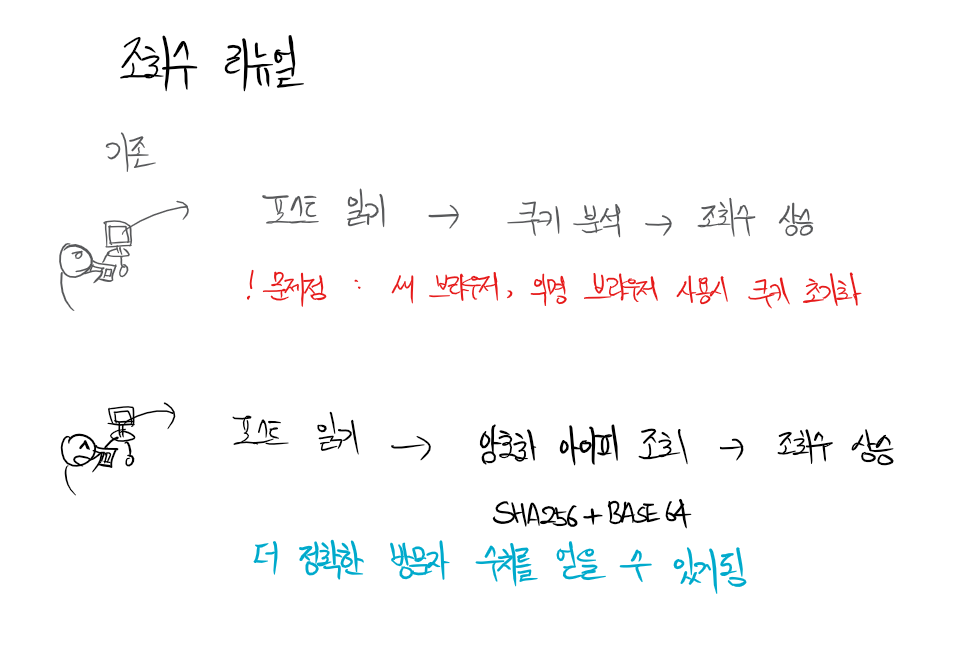 조회수 리뉴얼
기존
포스트 읽기 → 쿠키 분석 → 조회수 상승
! 문제점 : 새 브라우저, 익명 브라우저 사용시 쿠키 초기화
포스트 읽기 → 암호화 아이피 조회 → 조회수 상승
SHA256 + BASE64
더 정확한 방문자 수치를 얻을 수 있게됨